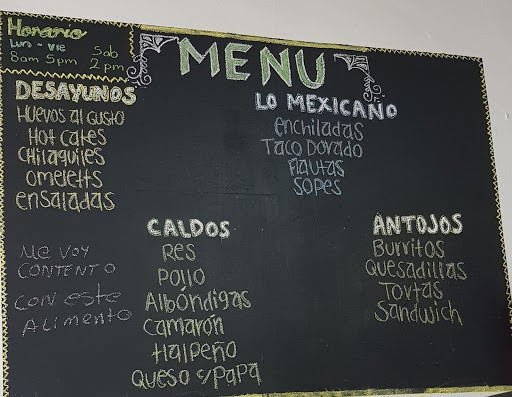 Horario
Lun - vie
8am 5pm
Sab
2 pm
MENU
DESAYUNOS
HUEVOS al GUSTO
HOT CAKES
CHILAQUILES
OMELETTS
ensaladas
LO MEXICANO
enchiladas
Taco Dorado
Flautas
SOPES
CALDOS
RES
POLLO
Albóndigas
Camarón
tlalpeño
QUESO c/PAPA
ANTOJOS
Burritos
Quesadillas
Tortas
Sandwich
Me VOY
CONTENTO
CON este
ALIMENTO